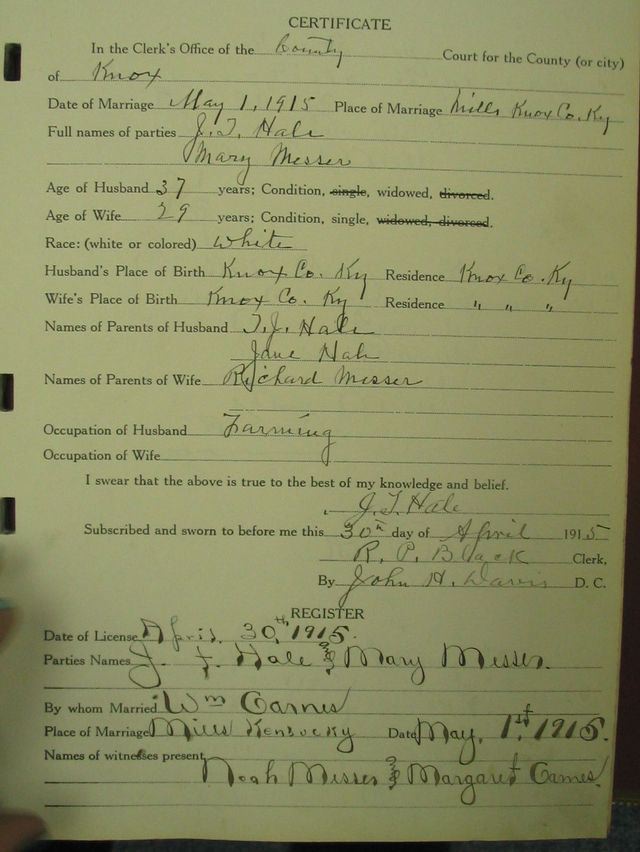 CERTIFICATE
In the Clerk's Office of the County Court for the County (or city)
of Knox
Date of Marriage May 1, 1915 Place of Marriage Mills Knox Co. Ky
Full names of parties J. T. Hale
Mary Messer
Age of Husband 37 years; Condition, single, widowed, divorced.
Age of Wife 29 years; Condition, single, widowed, divorced.
Race: (white or colored) White
Husband's Place of Birth Knox Co. Ky Residence Knox Co. Ky
Wife's Place of Birth Knox Co. Ky Residence " " "
Names of Parents of Husband T. J. Hale
Jane Hale
Names of Parents of Wife Richard Messer
Occupation of Husband Farming
Occupation of Wife
I swear that the above is true to the best of my knowledge and belief.
J. T. Hale
Subscribed and sworn to before me this 30th day of April 1915
R. P. Black Clerk,
By John H. Davis D. C.
REGISTER
Date of License April 30th, 1915.
Parties Names J. T. Hale & Mary Messer.
By whom Married Wm Carnes
Place of Marriage Mills Kentucky Date May, 1st, 1915.
Names of witnesses present
Noah Messer & Margaret Carnes.